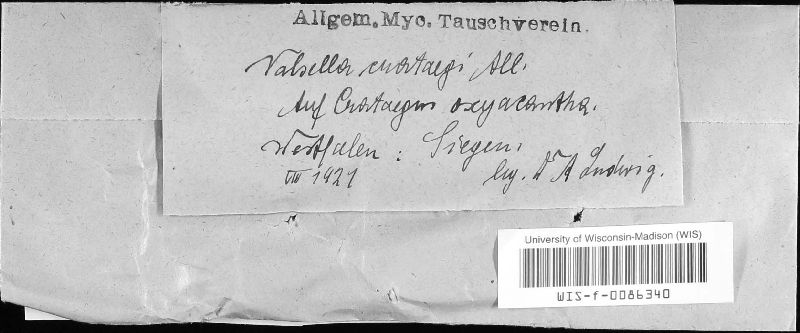 Allgem. Myc. Tauschverein.
Valsella crataegi All.
Auf Crataegus oxyacantha.
Westfalen: Siegen.
VIII 1921
leg. Dr A Ludwig.
University of Wisconsin-Madison (WIS)
WIS-f-0086340